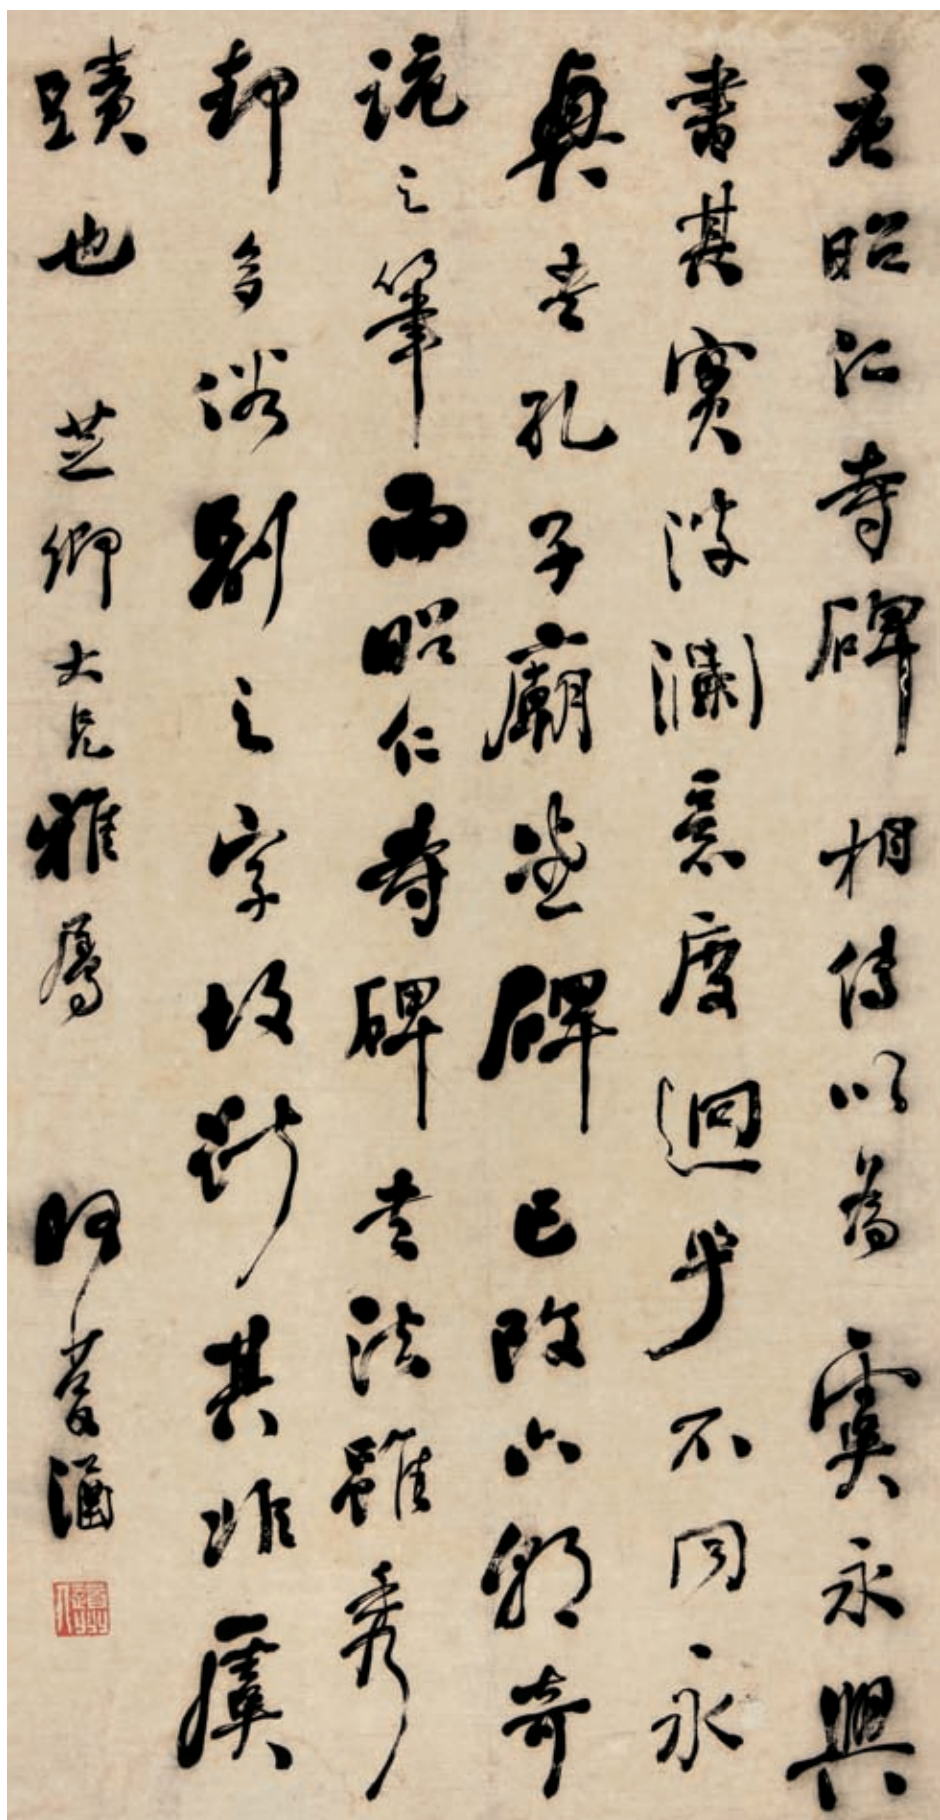 唐昭仁寺碑相傳以為虞永興
書其實波瀾意度迥乎不同永
興書孔子廟堂碑已改六朝奇
詭之筆而昭仁寺碑書法雖秀
却多俗別之字故斷其非虞
蹟也 芝卿大兄雅屬